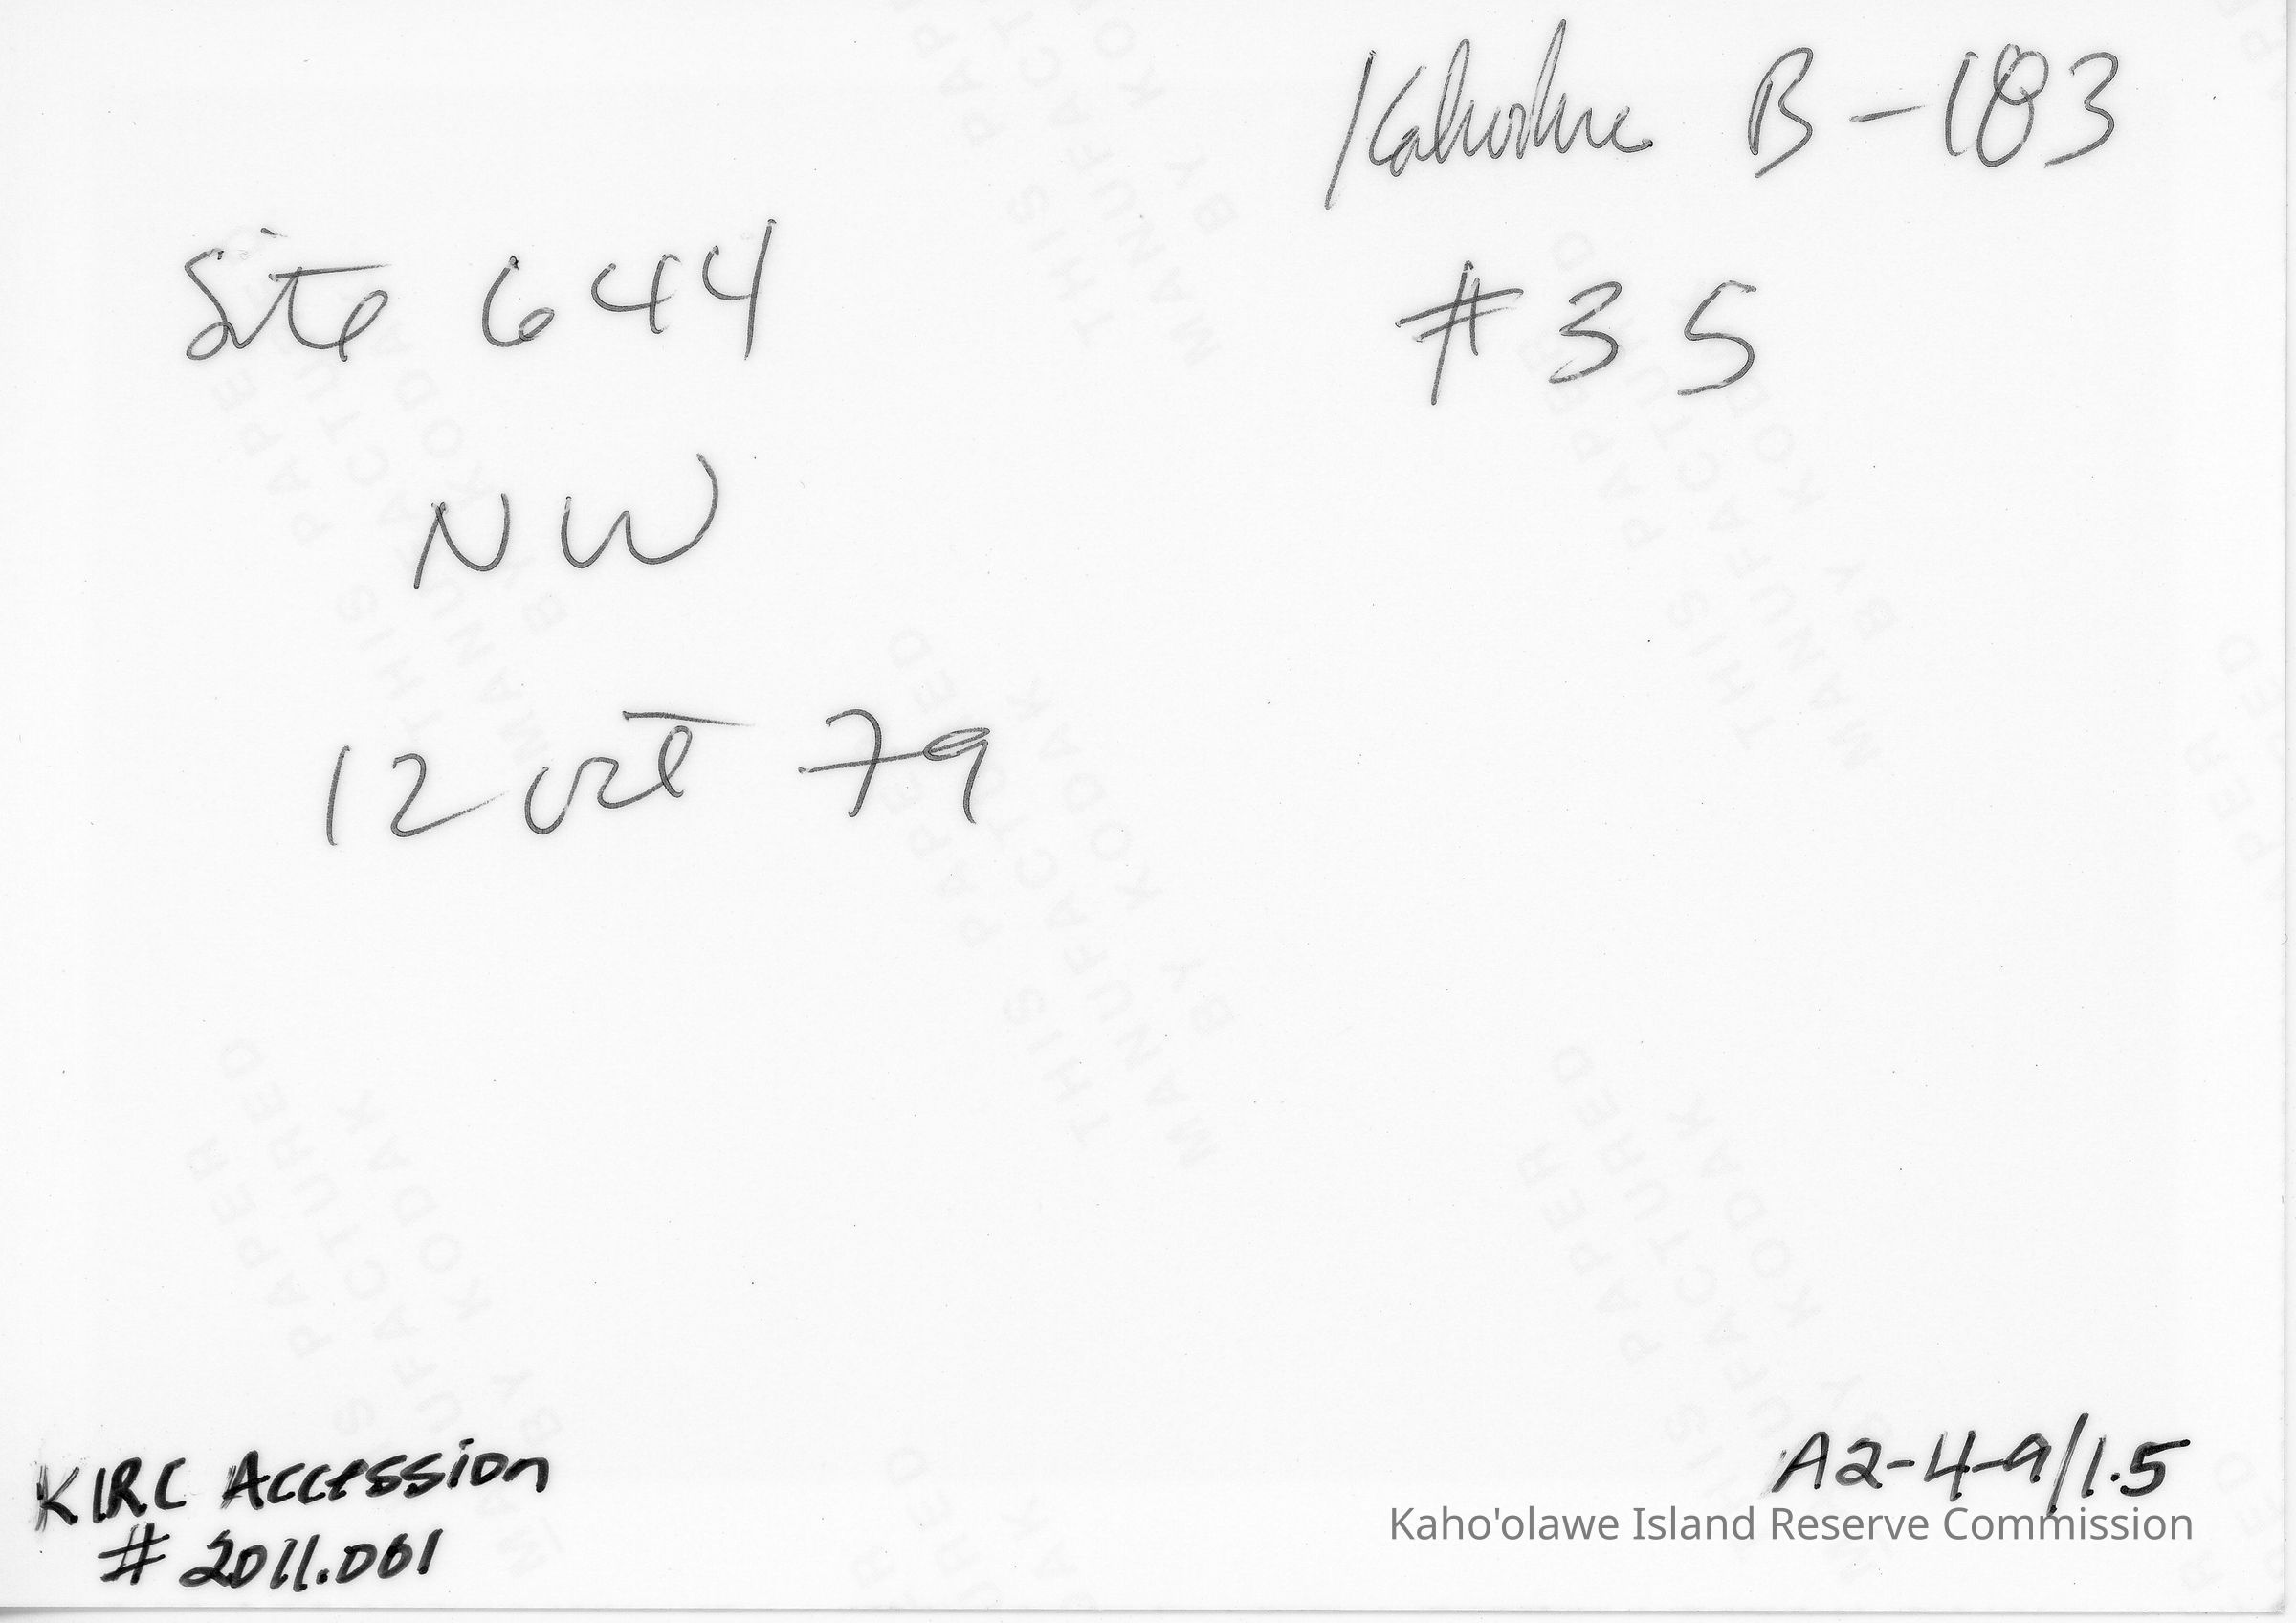 Kahoolawe B-183
#35
Site 644
NW
12 Oct 79
KIRC Accession
# 2011.001
A2-4-9/1.5
Kaho'olawe Island Reserve Commission
THIS PAPER
MANUFACTURED
BY KODAK